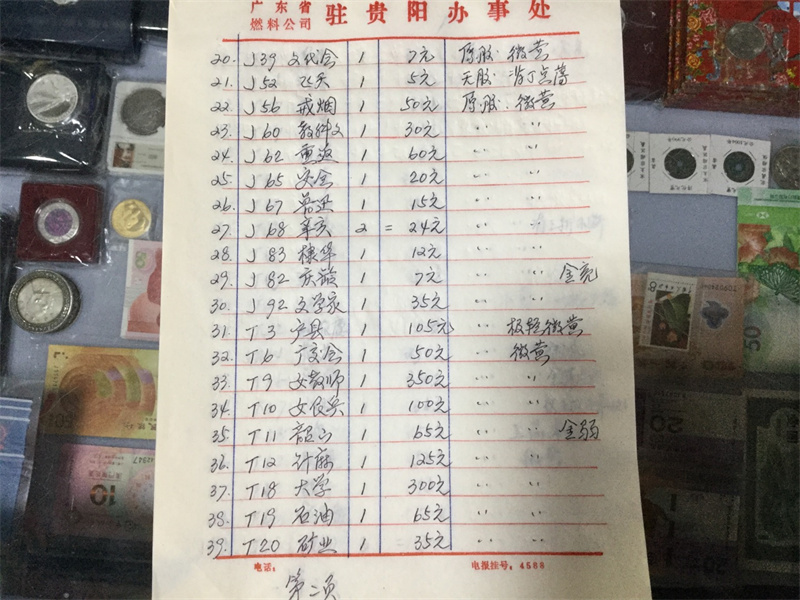 广东省
燃料公司
驻贵阳办事处
20. J39 文代会 1 7元 原胶·微黄
21. J52 飞天 1 5元 无胶·背丁点薄
22. J56 戒烟 1 50元 原胶·微黄
23. J60 教科文 1 30元 〃 〃
24. J62 重返 1 60元 〃 〃
25. J65 安全 1 20元 〃 〃
26. J67 1 15元 〃 〃
27. J68 辛亥 2 = 24元 〃 〃
28. J83 1 12元 〃 〃
29. J82 1 7元 〃 〃
30. J92 文学家 1 35元 〃 〃
31. T3 户县 1 105元 〃 极轻微黄
32. T6 广交会 1 50元 〃 微黄
33. T9 女教师 1 350元 〃 〃
34. T10 女民兵 1 100元 〃 〃
35. T11 韶山 1 65元 〃 〃 金弱
36. T12 针麻 1 125元 〃 〃
37. T18 大学 1 300元 〃 〃
38. T19 石油 1 65元 〃 〃
39. T20 矿业 1 35元 〃 〃
电话： 电报挂号：4588
第二页
50
10